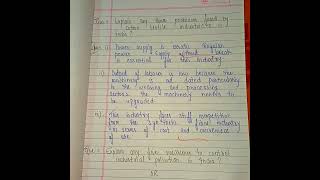 Que = Explain any three problems faced by
cotton textile industries in
India?
Ans = i) Power supply is erratic. Regular
power supply without break
is essential for this industry.
ii) Output of labour is low because the
machinery is out dated particularly
in the weaving and processing
sectors. the machinery needs to
be upgraded.
iii) The industry faces stiff competition
from the synthetic fibre industry
in terms of cost and convenience
of use.
Que = Explain any five measures to control
industrial pollution in India?
OR